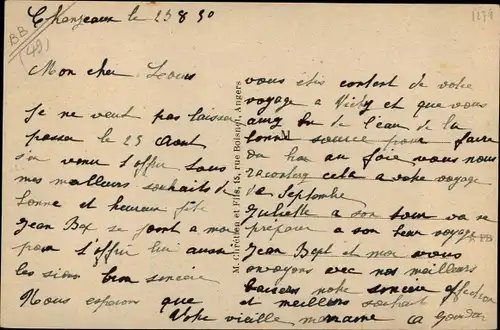 Chanzeaux le 23 8 30
1178
BB
(49)
Mon cher Louis
Je ne veut pas laisser
passer le 25 Aout
s'en venir t'offrir tous
mes meilleurs souhaits de
bonne et heureuse fête
Jean Bex se joint a moi
pour t'offrir lui aussi
les siens bien sincère
Nous espérons que
M. Chrétien et Fils, 15, rue Boisnet, Angers
vous êtes content de votre
voyage a Vichy et que vous
aurez bu de l'eau de la
bonne source pour faire
du bien au foie vous nous
raconterez cela a votre voyage
de Septembre
Juliette a son tour va se
préparer a son beau voyage
Jean Bept et moi vous
envoyons avec nos meilleurs
baisers notre sincère affection
et meilleurs souhaits
Votre vieille marraine